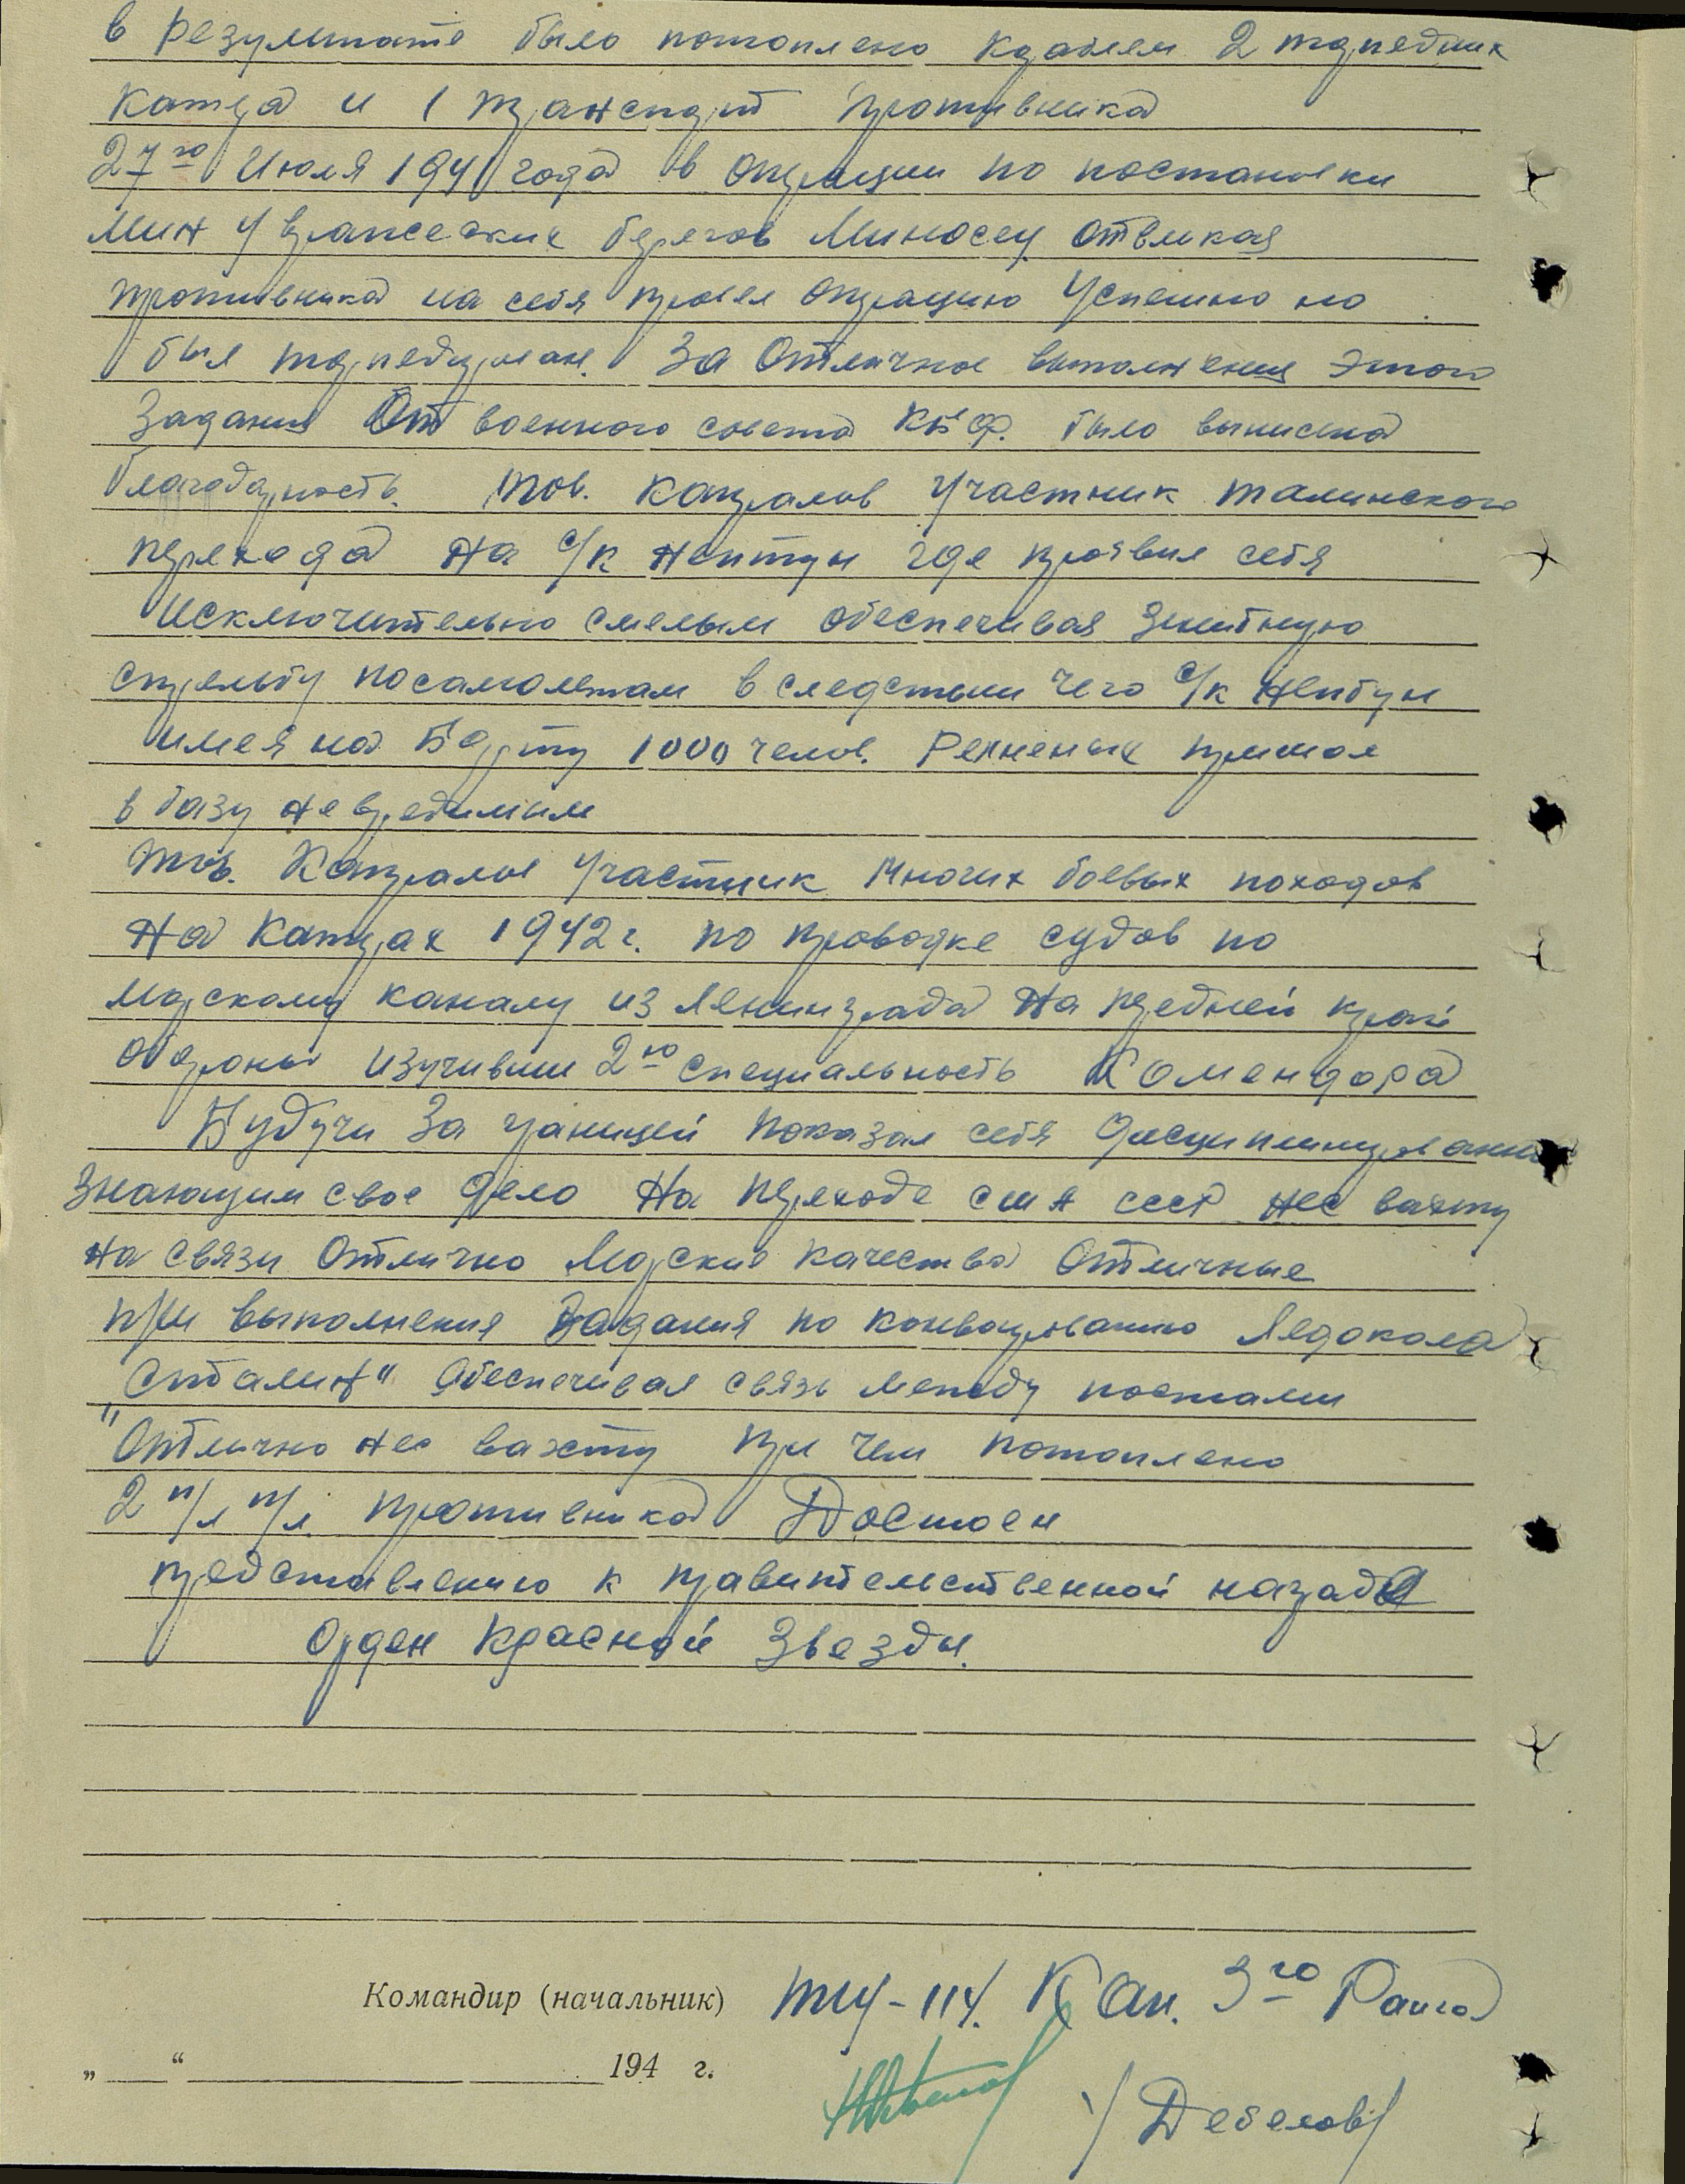 в результате было потоплено кораблем 2 торпедних
катера и 1 транспорт противника
27го Июля 1941 года в операции по постановки
мин у вражеских берегов Миносец отвлекая
противника на себя провел операцию Успешно но
был торпедирован. За Отличное выполнения этого
Задания От военного совета КБФ. было вынисена
благодарность. тов. Капралов Участник талинского
перехода На с/к Нептун где проявил себя
исключительно смелым обеспечивая Зенитную
стрельбу посамолетам вследствии чего с/к Нептун
имея на Борту 1000 челов. Раненых пришол
в базу невредимым
тов. Капралов Участник Многих боевых походов
На Катерах 1942 г. по проводке судов по
морскому каналу из Ленинграда На передней край
обороны изучивши 2ю специальность Комендора
Будучи За границей показал себя дисциплинирован
Знающим свое дело На переходе сша ссср Нес вахту
На связи Отлично Морские качества Отличные
при выполнения Задания по конвоированию Ледокола
"Сталин" Обеспечивая связь между постами
Отлично нес вахту при чем потоплено
2 п/л п/л. противника Достоен
представлению к правительственной награде
Орден Красной Звезды.
Командир (начальник) ТЩ-114. Кап. 3го Ранга
„ “ 194 г.
/Дебелов/